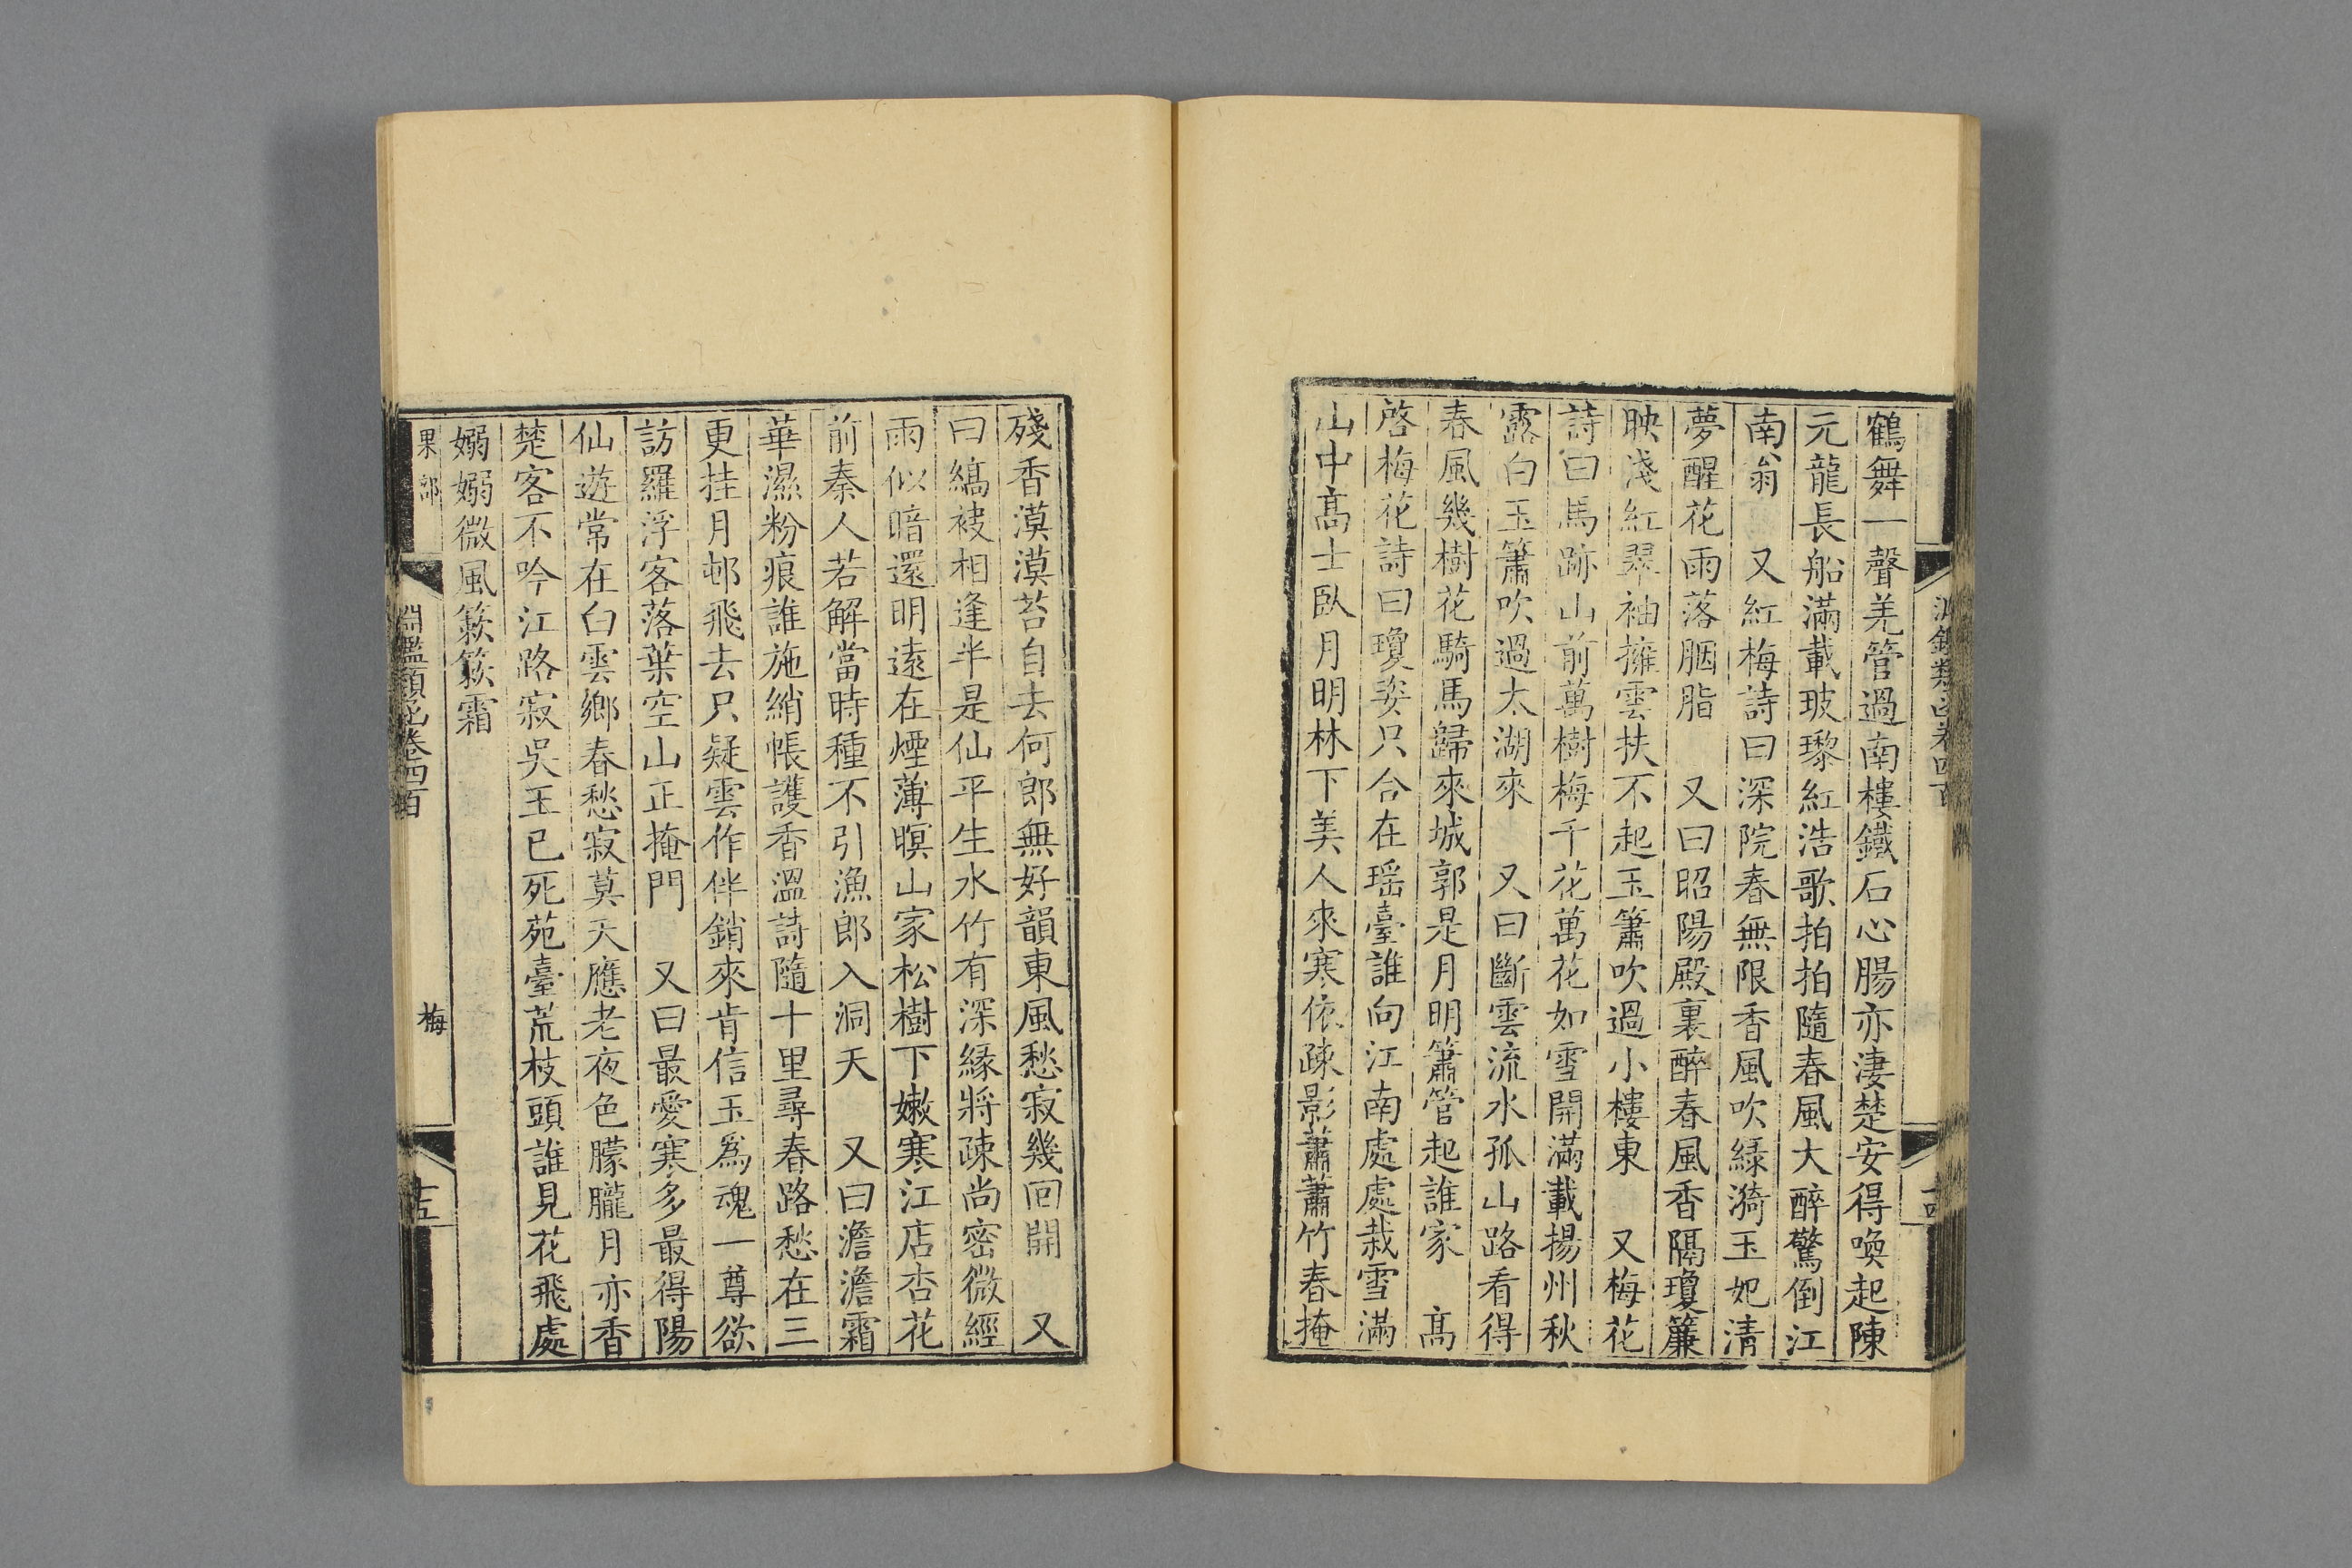 鶴舞一聲羌管過南樓鐵石心腸亦淒楚安得喚起陳
元龍長船滿載玻瓈紅浩歌拍拍隨春風大醉驚倒江
南翁　又紅梅詩曰深院春無限香風吹綠漪玉妃清
夢醒花雨落胭脂　又曰昭陽殿裏醉春風香隔瓊簾
映淺紅翠袖擁雲扶不起玉簫吹過小樓東　又梅花
詩曰馬跡山前萬樹梅千花萬花如雪開滿載揚州秋
露白玉簫吹過太湖來　又曰斷雲流水孤山路看得
春風幾樹花騎馬歸來城郭是月明簫管起誰家　高
啓梅花詩曰瓊姿只合在瑶臺誰向江南處處栽雪滿
山中高士臥月明林下美人來寒依疎影蕭蕭竹春掩
殘香漠漠苔自去何郎無好韻東風愁寂幾回開　又
曰縞袂相逢半是仙平生水竹有深緣將疎尚密微經
雨似暗還明遠在煙薄暝山家松樹下嫩寒江店杏花
前秦人若解當時種不引漁郎入洞天　又曰澹澹霜
華濕粉痕誰施綃帳護香溫詩隨十里尋春路愁在三
更挂月邨飛去只疑雲作伴銷來肯信玉爲魂一尊欲
訪羅浮客落葉空山正掩門　又曰最愛寒多最得陽
仙遊常在白雲鄉春愁寂莫天應老夜色朦朧月亦香
楚客不吟江路寂吳王已死苑臺荒枝頭誰見花飛處
嫋嫋微風簌簌霜
果部　淵鑑類函卷四百　梅　十五